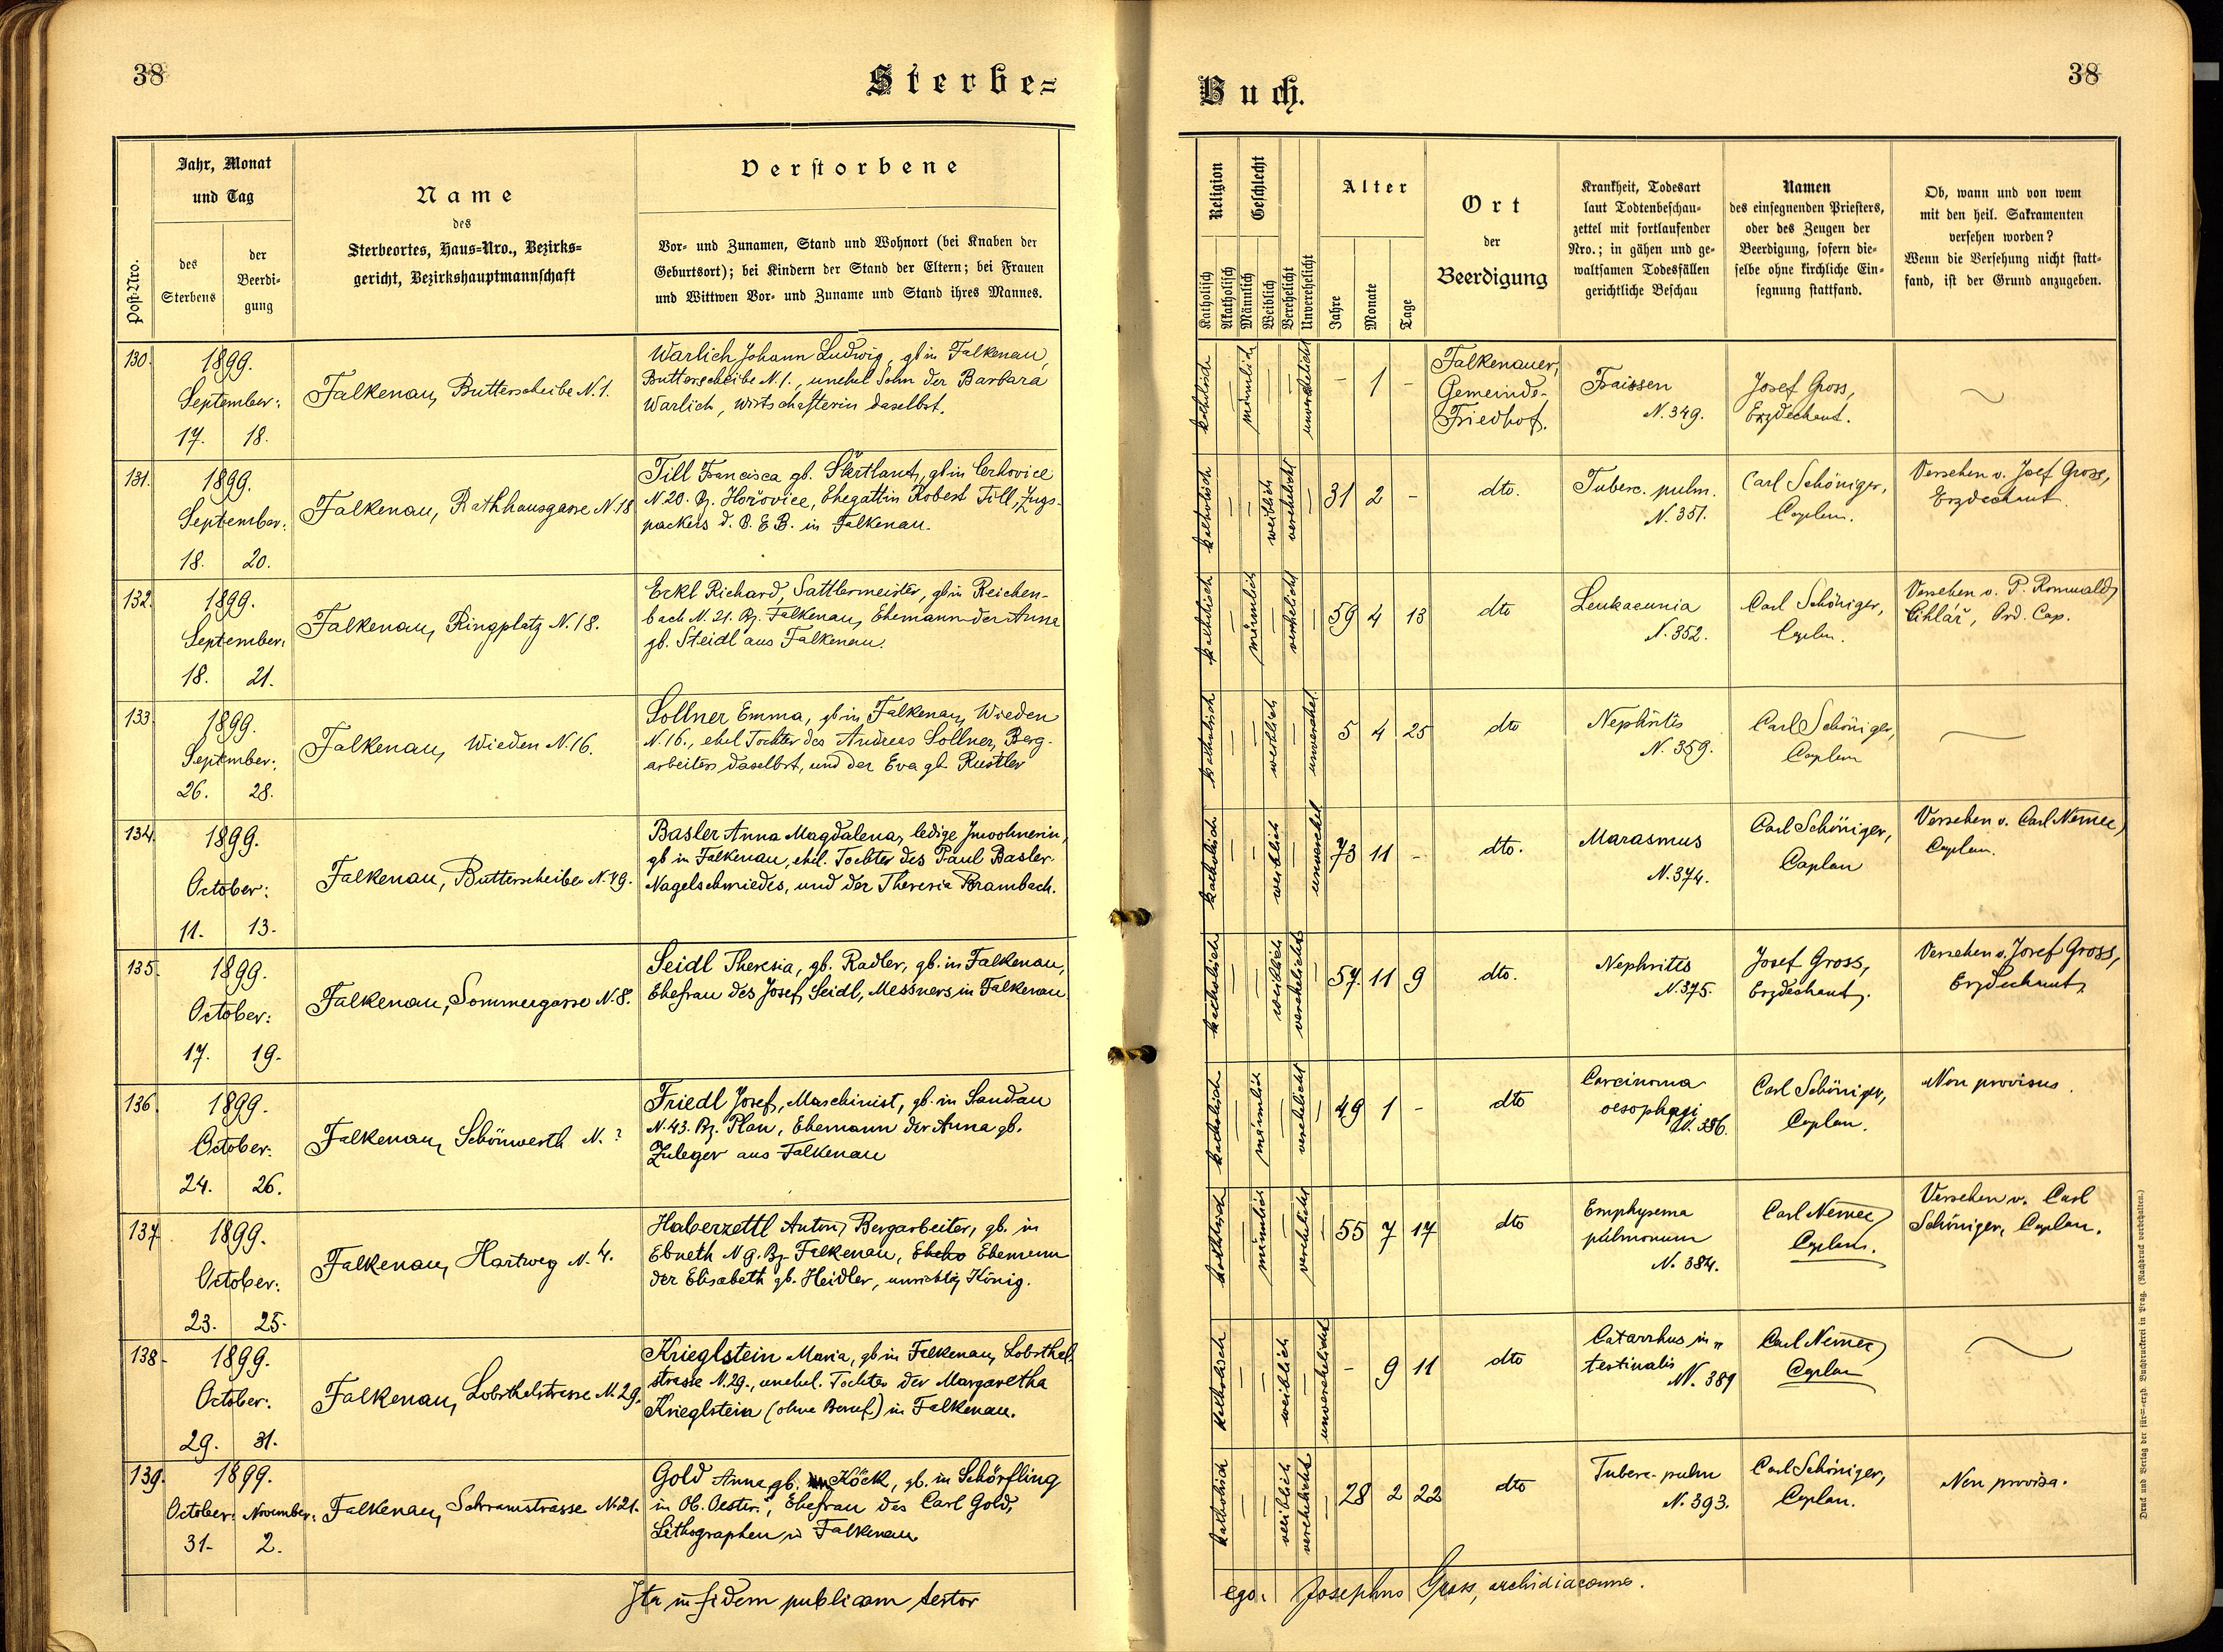 38
Sterbe=
Post-Nro.
Jahr, Monat
und Tag
des
Sterbens
der
Beerdi-
gung
Name
des
Sterbeortes, Haus-Nro., Bezirks=
gericht, Bezirkshauptmannschaft
Verstorbene
Vor- und Zunamen, Stand und Wohnort (bei Knaben der
Geburtsort); bei Kindern der Stand der Eltern; bei Frauen
und Wittwen Vor- und Zuname und Stand ihres Mannes.
130.
1899.
September:
17. 18.
Falkenau, Butterscheibe N. 1.
Warlich Johann Ludwig, gb in Falkenau,
Butterscheibe N. 1., unehel Sohn der Barbara
Warlich, Wirtschafterin daselbst.
131.
1899.
September:
18. 20.
Falkenau, Rathhausgasse N. 18
Till Francisca gb. Skrtlant, gb in Cerhovice
N 20. Bz. Hořovice, Ehegattin Robert Till, Zugs-
packers d. B. E B. in Falkenau.
132.
1899.
September:
18. 21.
Falkenau, Ringplatz N. 18.
Erkl Richard, Sattlermeister, gb in Reichen-
bach N. 21. Bz. Falkenau, Ehemann der Anna
gb. Steidl aus Falkenau.
133.
1899.
September:
26. 28.
Falkenau, Wieden N. 16.
Sollner Emma, gb in Falkenau, Wieden
N. 16., ehel Tochter des Andreas Sollner, Berg-
arbeiters daselbst, und der Eva gb Rustler
134.
1899.
October:
11. 13.
Falkenau, Butterscheibe N. 49.
Basler Anna Magdalena, ledige Inwohnerin,
gb in Falkenau, ehel. Tochter des Paul Basler
Nagelschmiedes, und der Theresia Brambach.
135.
1899.
October:
17. 19.
Falkenau, Sommergasse N. 8.
Seidl Theresia, gb. Radler, gb. in Falkenau,
Ehefrau des Josef Seidl, Messners, in Falkenau
136.
1899.
October:
24. 26.
Falkenau, Schönwerth N. ?
Friedl Josef, Maschinist, gb. in Sandau
N. 43. Bz. Plan, Ehemann der Anna gb.
Zuleger aus Falkenau
137.
1899.
October:
23. 25.
Falkenau, Hartweg N. 4.
Haberzettl Anton, Bergarbeiter, gb. in
Ebneth N 9. Bz Falkenau, Ehemann
der Elisabeth gb. Heidler, unrichtig König.
138.
1899.
October:
29. 31.
Falkenau, Lobsthalstrasse N. 29.
Krieglstein Maria, gb in Falkenau, Lobsthal-
strasse N. 29., unehel. Tochter der Margaretha
Krieglstein (ohne Beruf) in Falkenau.
139.
1899.
October: November:
31. 2.
Falkenau, Schramstrasse N. 21.
Gold Anna gb. Köck, gb. in Schörfling
in Ob. Oester., Ehefrau des Carl Gold,
Lithographen in Falkenau
Ita in fidem publicam testor
Buch.
38
Religion
Geschlecht
Katholisch
Akatholisch
Männlich
Weiblich
Verehelicht
Unverehelicht
Alter
Jahre
Monate
Tage
Ort
der
Beerdigung
Krankheit, Todesart
laut Todtenbeschau-
zettel mit fortlaufender
Nro.; in gähen und ge-
waltsamen Todesfällen
gerichtliche Beschau
Namen
des einsegnenden Priesters,
oder des Zeugen der
Beerdigung, sofern die-
selbe ohne kirchliche Ein-
segnung stattfand.
Ob, wann und von wem
mit den heil. Sakramenten
versehen worden?
Wenn die Versehung nicht statt-
fand, ist der Grund anzugeben.
katholisch männlich unverehelicht - 1 -
Falkenauer
Gemeinde-
Friedhof.
Fraissen
N. 349.
Josef Gross,
Erzdechant.
katholisch weiblich verehelicht 31 2 -
dto.
Tuberc. pulm.
N. 351.
Carl Schöniger,
Caplan.
Versehen v. Josef Gross,
Erzdechant
katholisch männlich verehelicht 59 4 13
dto
Leukaemia
N. 352.
Carl Schöniger,
Caplan.
Versehen v. P. Romuald
Cihlář, Ord. Cap.
katholisch weiblich unverehel. 5 4 25
dto
Nephritis
N. 359.
Carl Schöniger,
Caplan
katholisch weiblich unverehel 73 11 -
dto.
Marasmus
N. 374.
Carl Schöniger,
Caplan
Versehen v. Carl Nemec,
Caplan.
katholisch weiblich verehelicht 57. 11 9
dto.
Nephritis
N. 375.
Josef Gross,
Erzdechant.
Versehen v. Josef Gross,
Erzdechant
katholisch männlich verehelicht 49 1 -
dto
Carcinoma
oesophagi
N. 386.
Carl Schöniger,
Caplan.
Non provisus.
katholisch männlich verehelicht 55 7 17
dto
Emphysema
pulmonum
N. 384.
Carl Nemec,
Caplan.
Versehen v. Carl
Schöniger, Caplan.
katholisch weiblich unverehelicht - 9 11
dto
Catarrhus in„
testinalis
N. 389
Carl Nemec,
Caplan
katholisch weiblich verehelicht 28 2 22
dto
Tuberc. pulm
N. 393.
Carl Schöniger,
Caplan.
Non provisa.
ego: Josephus Gross, archidiaconus.
Druck und Verlag der fürst-erzb. Buchdruckerei in Prag. (Nachdruck vorbehalten.)